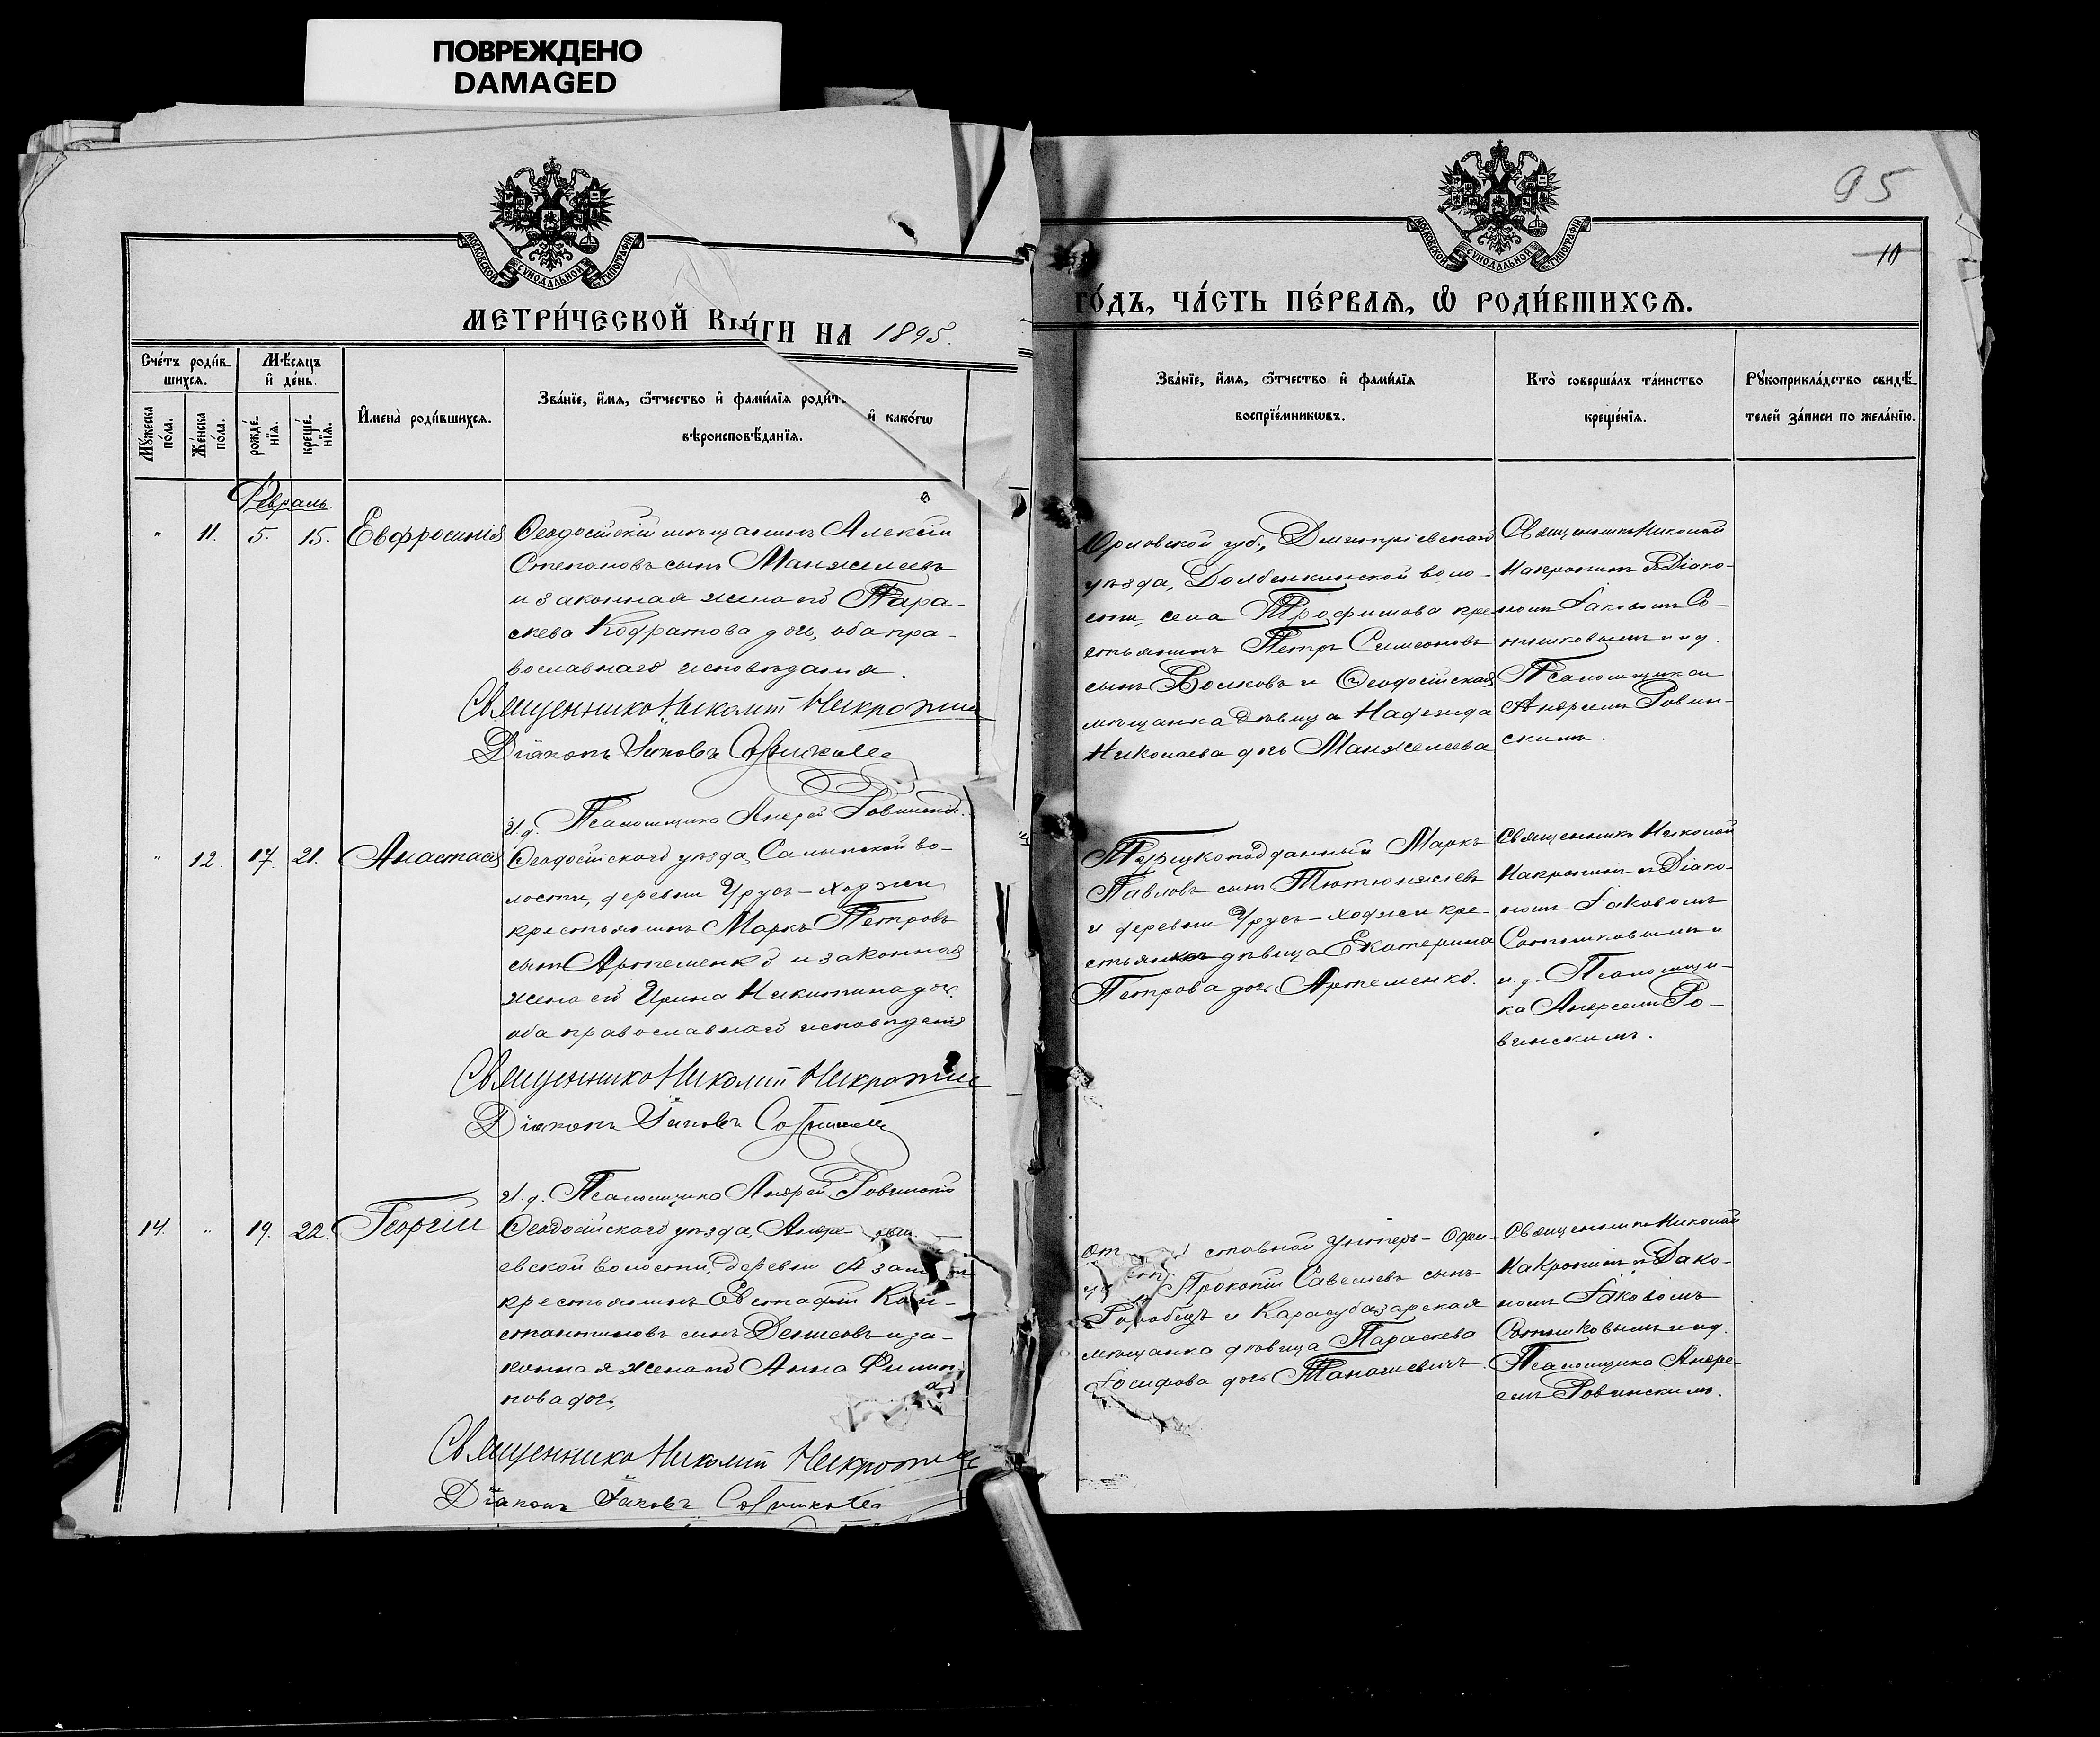 ПОВРЕЖДЕНО
DAMAGED
МОСКОВСКОЙ СУНОДАЛЬНОЙ ТИПОГРАФІИ
МОСКОВСКОЙ СУНОДАЛЬНОЙ ТИПОГРАФІИ
95
10
МЕТРИ́ЧЕСКОЙ КНИ́ГИ НА 1895.
ГО́ДЪ, ЧА́СТЬ ПЕ́РВАѦ, Ѡ҆ РОДИ́ВШИХСѦ.
Сче́тъ роди́в-
шихсѧ.
Мѣ́сѧцъ
и҆ де́нь.
Мꙋ́жеска
по́ла.
Же́нска
по́ла.
рожде́-
нїѧ.
креще́-
нїѧ.
И҆мена̀ роди́вшихсѧ.
Зва́нїе, и҆́мѧ, ѻ҆́тчество и҆ фами́лїѧ роди́т и҆ како́гѡ
вѣроисповѣ́данїѧ.
Зва́нїе, и҆́мѧ, ѻ҆́тчество и҆ фами́лїѧ
воспрїе́мникѡвъ.
Кто̀ соверша́лъ та́инство
креще́нїѧ.
Рꙋкоприкла́дство свидѣ́-
телей за́писи по жела́нїю.
Февраль.
" 11. 5. 15. Евфросинія
Ѳеодосійскій мѣщанинъ Алексій
Степановъ сынъ Манжелеевъ
и законная жена его Пара-
скева Кодратова дочь, оба пра-
вославнаго исповѣданія.
Священникъ Николай Накропинъ
Діаконъ Іаковъ Сотниковъ
И. д. Псаломщика Андрей Ровинскій
Орловской губ., Дмитріевскаго
уѣзда, Долбенкинской воло-
сти, села Трофимова кре-
стьянинъ Петръ Симеоновъ
сынъ Волковъ и Ѳеодосійская
мѣщанка дѣвица Надежда
Николаева дочь Манжелеева
Священникъ Николай
Накропинъ съ Діако-
номъ Іаковомъ Со-
тниковымъ и и. д.
Псаломщика
Андреемъ Ровин-
скимъ.
" 12. 17. 21. Анастасія
Ѳеодосійскаго уѣзда, Салынской во-
лости, деревни Урусъ-Ходжи
крестьянинъ Маркъ Петровъ
сынъ Артеменко и законная
жена его Ирина Никитина дочь
оба православнаго исповѣданія
Священникъ Николай Накропинъ
Діаконъ Іаковъ Сотниковъ
И. д. Псаломщика Андрей Ровинскій
Турецкоподданный Маркъ
Павловъ сынъ Тютюнжіевъ
и деревни Урусъ-Ходжи кре-
стьянка дѣвица Екатерина
Петрова дочь Артеменко.
Священникъ Николай
Накропинъ съ Діако-
номъ Іаковомъ
Сотниковымъ и
и. д. Псаломщи-
ка Андреемъ Ро-
винскимъ.
14. " 19. 22. Георгій
Ѳеодосійскаго уѣзда, Андре
евской волости, деревни
крестьянинъ Евстафій Кон-
стантиновъ сынъ Денисовъ и за-
конная жена его Анна Филип-
пова дочь,
Священникъ Николай Накропинъ
Діаконъ Іаковъ Сотниковъ
От ставной Унтеръ-Офи-
Прокопій Савеліевъ сынъ
Горобецъ и Карасубазарская
мѣщанка дѣвица Параскева
Іосифова дочь Танашевичъ.
Священникъ Николай
Накропинъ съ Діако-
номъ Іаковомъ
Сотниковымъ и и. д.
Псаломщика Андре-
емъ Ровинскимъ.